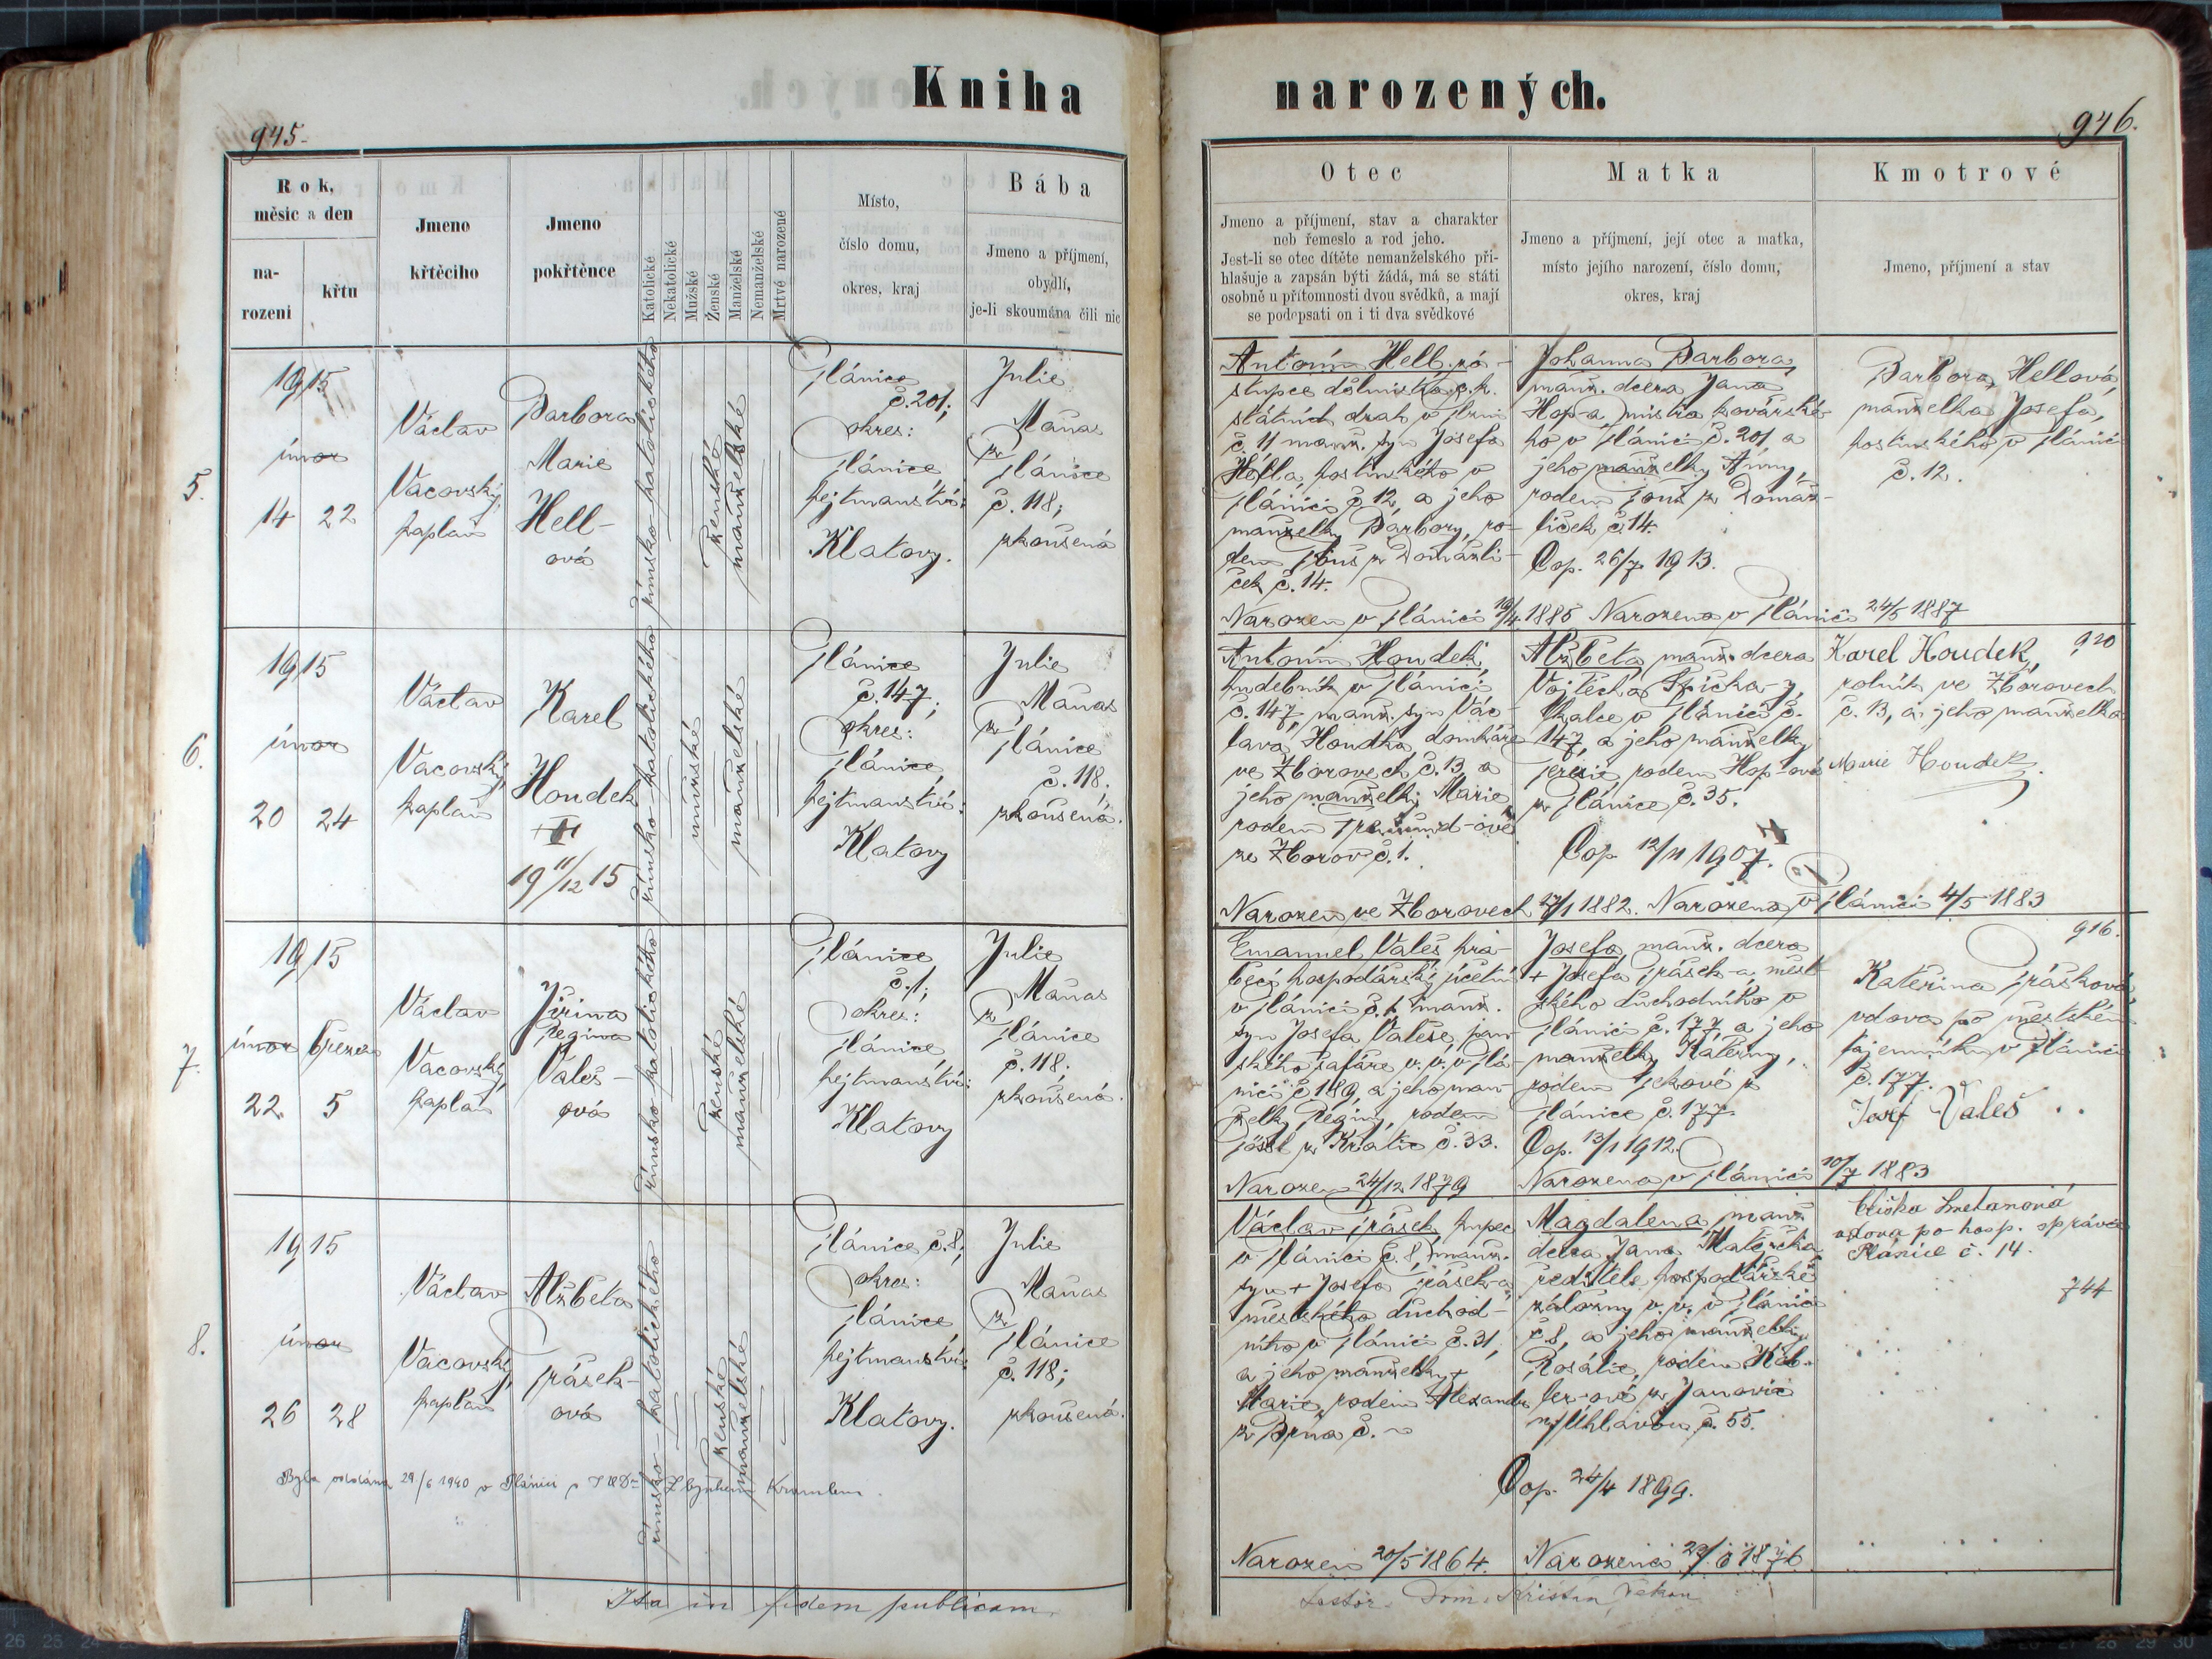 Kniha
narozených.
945.
946.
Rok,
měsíc a den
na-
rozeni
křtu
Jmeno
křtěcího
Jmeno
pokřtěnce
Katolické
Nekatolické
Mužské
Ženské
Manželské
Nemanželské
Mrtvé narozené
Místo,
číslo domu,
okres, kraj
Bába
Jmeno a příjmení,
obydlí,
je-li skoumána čili nic
Otec
Jmeno a příjmení, stav a charakter
neb řemeslo a rod jeho.
Jest-li se otec dítěte nemanželského při-
hlašuje a zapsán býti žádá, má se státi
osobně u přítomnosti dvou svědků, a mají
se podepsati on i ti dva svědkové
Matka
Jmeno a příjmení, její otec a matka,
místo jejího narození, číslo domu,
okres, kraj
Kmotrové
Jmeno, příjmení a stav
5.
1915
únor
14 22
Václav
Vacovský,
kaplan
Barbora
Marie
Hell-
ová
římsko-katolického
ženské
manželské
Plánice
č. 201;
okres:
Plánice
hejtmanství:
Klatovy.
Julie
Maňas
z
Plánice
č. 118;
zkoušená
Antonín Hell, zá-
stupce dílmistra c. k.
státních drah v Plzni
č. 11 manž. syn Josefa
Hella, hostinského v
Plánici č. 12, a jeho
manželky Barbory, ro-
dem z Domažli-
ček č. 14.
Narozen v Plánici 19/4 1885
Johanna Barbora,
manž. dcera Jana
Hop-a mistra kovářské-
ho v Plánici č. 201 a
jeho manželky Anny,
rodem z Domaž-
liček č. 14.
Cop. 26/7 1913.
Narozena v Plánici 24/5 1887
Barbora Hellová,
manželka Josefa,
hostinského v Plánici
č. 12.
6.
1915
únor
20 24
Václav
Vacovský,
kaplan
Karel
Houdek
†
19 11/12 15
římsko-katolického
mužské
manželské
Plánice
č. 147;
okres:
Plánice,
hejtmanství:
Klatovy
Julie
Maňas
z
Plánice
č. 118.
zkoušená.
Antonín Houdek,
hudebník v Plánici
č. 147, manž. syn Vác-
lava Houdka, domkáře
ve Zborovech č. 13 a
jeho manželky Marie
rodem
ze Zborov č. 1.
Narozen ve Zborovech 27/1 1882.
Alžběta, manž. dcera
Vojtěcha Špička-y,
tkalce v Plánici č.
147, a jeho manželky
Terezie, rodem Hop-ové
z Plánice č. 35.
Cop 12/11 1907.
Narozena v Plánici 4/5 1883
Karel Houdek, 920
rolník ve Zborovech
č. 13, a jeho manželka
Marie Houdek
7.
1915
únor březen
22. 5
Václav
Vacovský,
kaplan
Jiřina
Regina
Valeš-
ová
římsko-katolického
ženské
manželské
Plánice
č. 1;
okres:
Plánice,
hejtmanství:
Klatovy
Julie
Maňas
z
Plánice
č. 118.
zkoušená.
Emanuel Valeš, hra-
běcí hospodářský účetní
v Plánici č. 1, manž.
syn Josefa Valeše, pan-
ského šafáře v. v. v Plá-
nici č. 189, a jeho man-
želky Reginy, rodem
z Kratic č. 33.
Narozen 24/12 1879
Josefa, manž. dcera
+ Josefa Jrásek-a, měst-
ského důchodního v
Plánici č. 177, a jeho
manželky Kateřiny,
rodem z
Plánice č. 177.
Cop. 13/1 1912.
Narozena v Plánici 10/7 1883
916.
Kateřina Jrásková,
vdova po městském
tajemníku v Plánici
č. 177.
Josef Valeš
8.
1915
únor
26 28
Václav
Vacovský,
kaplan
Alžběta
Jrásek-
ová
římsko-katolického
ženské
manželské
Plánice č. 8;
okres:
Plánice
hejtmanství:
Klatovy.
Julie
Maňas
z
Plánice
č. 118;
zkoušená.
Byla oddána 29/6 1940 v Plánici s JUDr
Václav Jrásek, kupec
v Plánici č. 8, manž.
syn + Josefa Jrásek-a,
městského důchod-
ního v Plánici č. 31,
a jeho manželky +
Marie, rodem Alexandr
z Brna č. ~
Narozen 20/5 1864.
Magdalena, manž.
dcera Jana Matějčka,
ředitele hospodářské
záložny v. v. v Plánici
č. 8, a jeho manželky
Rosálie, rodem
z Janovic
n/Úhlavou č. 55.
Cop. 24/4 1899.
Narozena 1876
Eliška Smetanová
vdova po hosp. správci
Plánice č. 14.
744
Ita in fidem publicam
Dom. Kristen, děkan